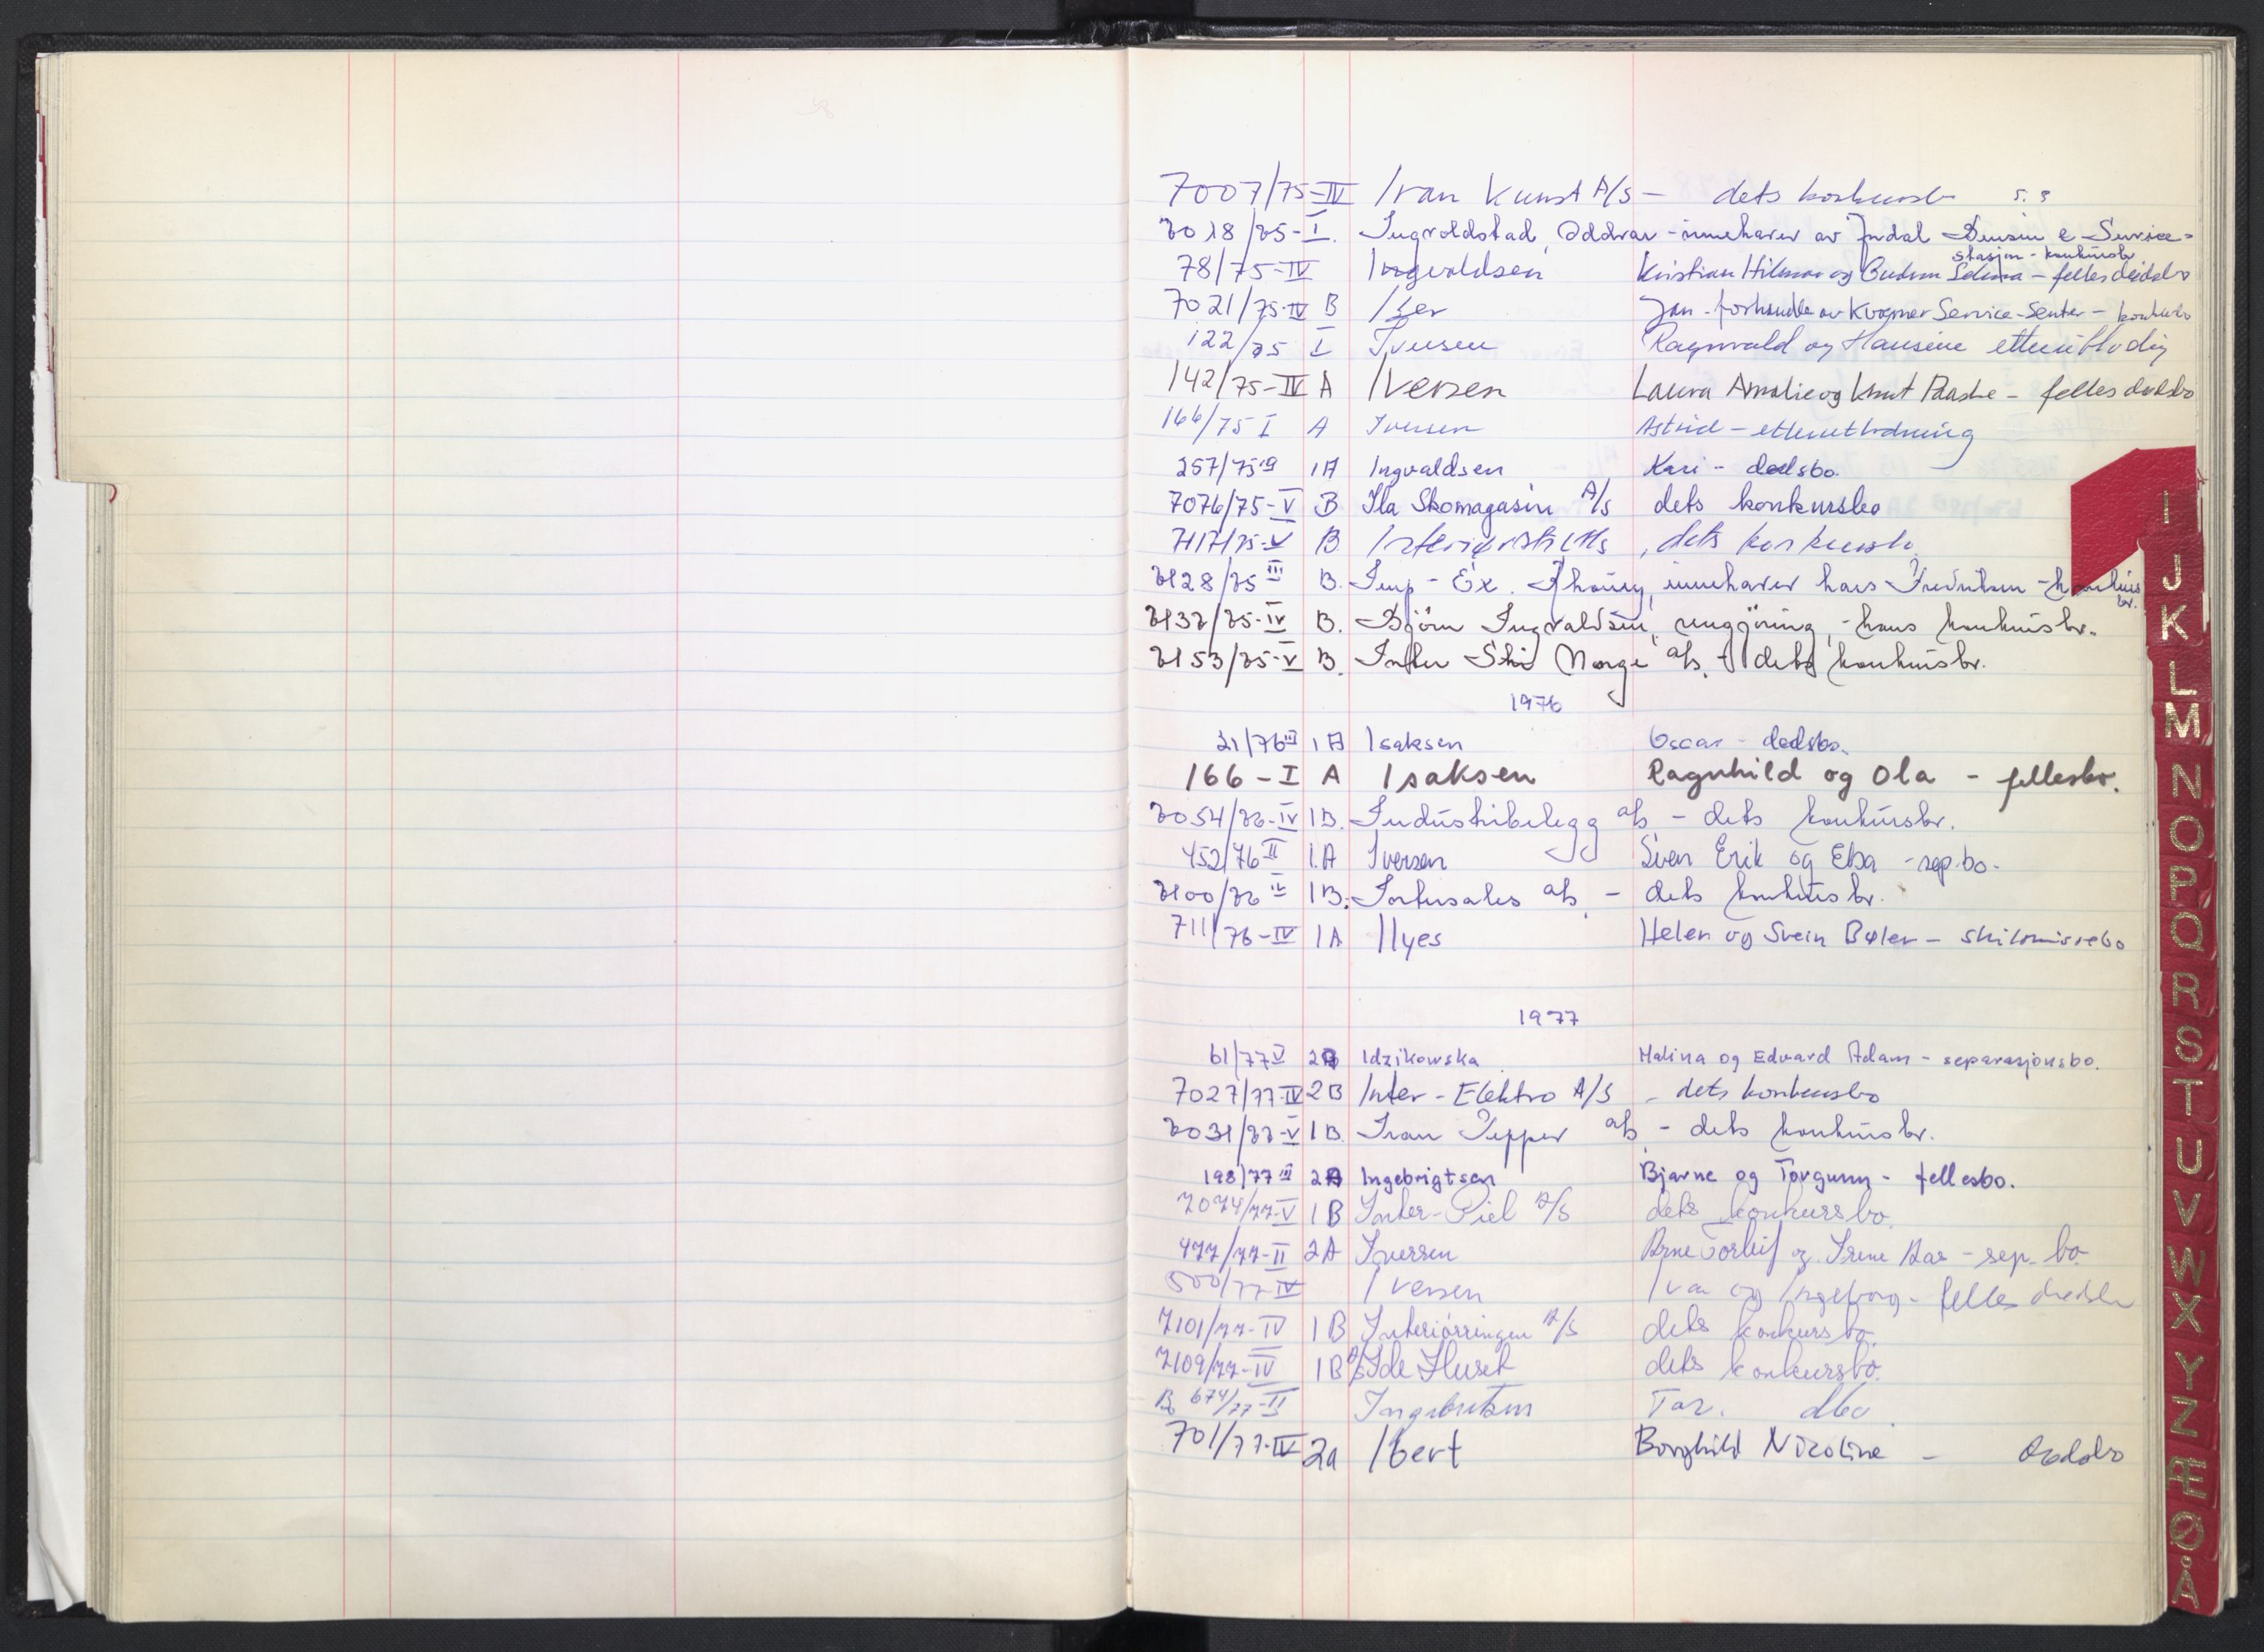 7007/75-IV Ivan Kunst A/S - dets konkursbo S. 3
7018/75-I. Ingvoldstad, Oddvar - innehaver av Indal Bensin & Service-
stasjon - konkursbo
78/75-IV Ingvaldsen Kristian Hilmar og Gudrun Selma - felles dødsbo
7021/75-IV B Iser Jan - forhandler av Kværner Service-Senter - konkursbo
122/75 I Iversen Ragnvald og Hansine etterutlodn
142/75-IV A Iversen Laura Amalie og Knut Paaske - felles dødsbo
166/75 I A Iversen Astrid - etterutlodning
257/75 IA Ingvaldsen Kari - dødsbo.
7076/75-V B Ila Skomagasin A/S dets konkursbo
7117/75-V B , dets konkursbo
7128/75 III B. Imp - Ex. innehaver hans Fredriksen - konkurs
bo.
7132/75-IV B. Bjørn Ingvaldsen, rengjöring, - hans konkursbo.
7153/75-V B. Inter Ski Norge a/s. - dets konkursbo.
1976
21/76 III 1A Isaksen Oscar - dødsbo.
166 - I A Isaksen Ragnhild og Ola - fellesbo.
7054/76-IV 1B. Industribelegg a/s - dets konkursbo.
452/76 II 1.A Iversen Sven Erik og Elsa - sep.bo.
7100/76 IV 1B. Intersales a/s - dets konkursbo.
711/76-IV 1A Ilyes Helen og Svein Bøler - skilsmissebo
1977
61/77 V 2A Idzikowska Halina og Edvard Adam - separasjonsbo.
7027/77-IV 2B Inter-Elektro A/S - dets konkursbo
7031/77-V 1B. Iran Tepper a/s - dets konkursbo.
198/77 III 2A Ingebrigtsen Bjarne og Torgunn - fellesbo.
7074/77-V 1B Inter-Piel A/S dets konkursbo.
477/77-II 2A Iversen Arne Torleif og Irene Aas - sep. bo.
500/77 IV Iversen Ivar og Ingeborg - felles dødsbo
7101/77-IV 1B Interiørringen A/S dets konkursbo.
7109/77-IV 1B A/S Ide Huset dets konkursbo.
B. 674/77-II Ingebretsen Tor. dbo.
701/77-IV 2a Ibert Borghild Nicoline - dødsbo
I
J
K
L
M
N
O
P
Q
R
S
T
U
V
W
X
Y
Z
Æ
Ø
Å